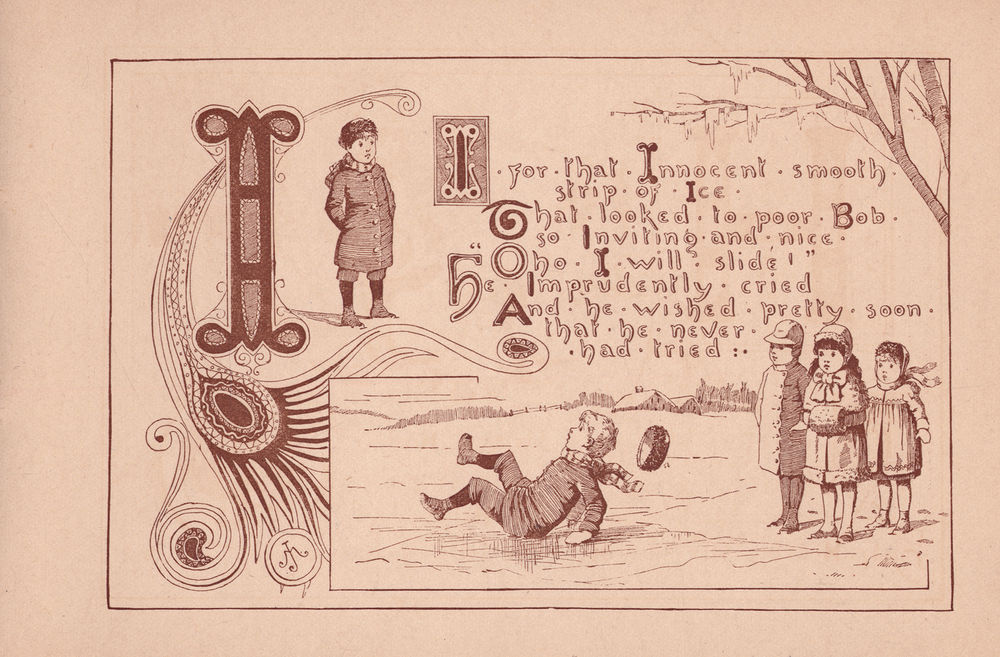 I
I · for · that · Innocent · smooth ·
strip · of · Ice ·
That · looked · to · poor · Bob ·
so · Inviting · and · nice ·
"Oho · I · will · slide!"
He · Imprudently · cried
And · he · wished · pretty · soon ·
that · he · never ·
· had · tried :·